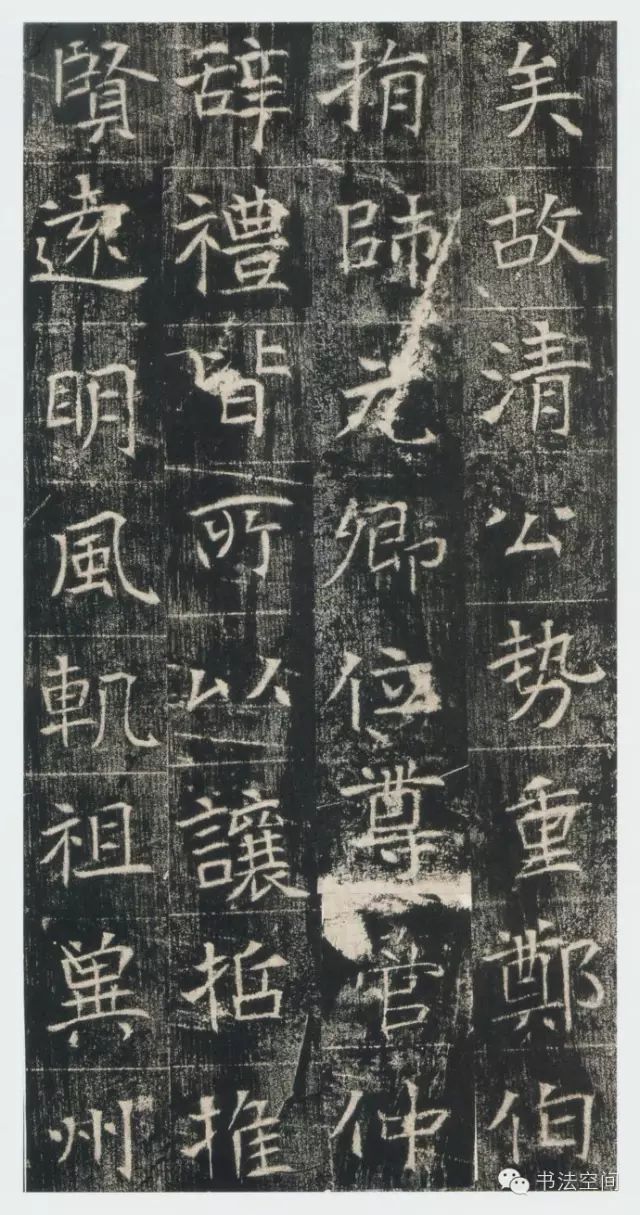 矣故清公勢重鄭伯
捐師元卿位尊管仲
辭禮皆所以讓哲推
賢遠明風軌祖冀州
书法空间